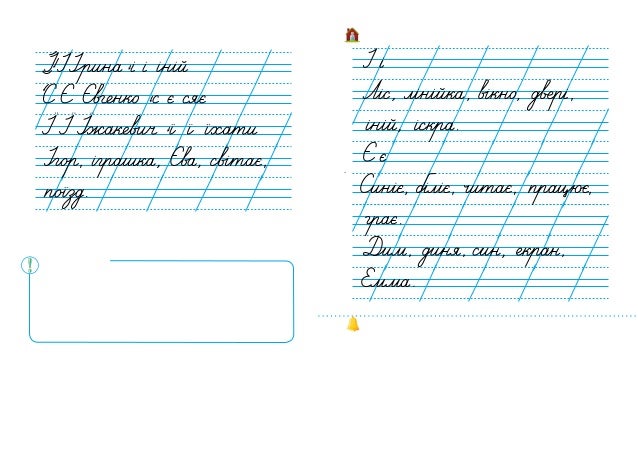 І І Ірина і і іній
Є Є Євгенко є є сяє
Ї Ї Їжакевич ї ї їхати
Ігор, іграшка, Єва, світає,
поїзд.
!
І і
Ліс, лінійка, вікно, двері,
іній, іскра.
Є є
Синіє, біліє, читає, працює,
грає.
Дим, диня, син, екран,
Емма.